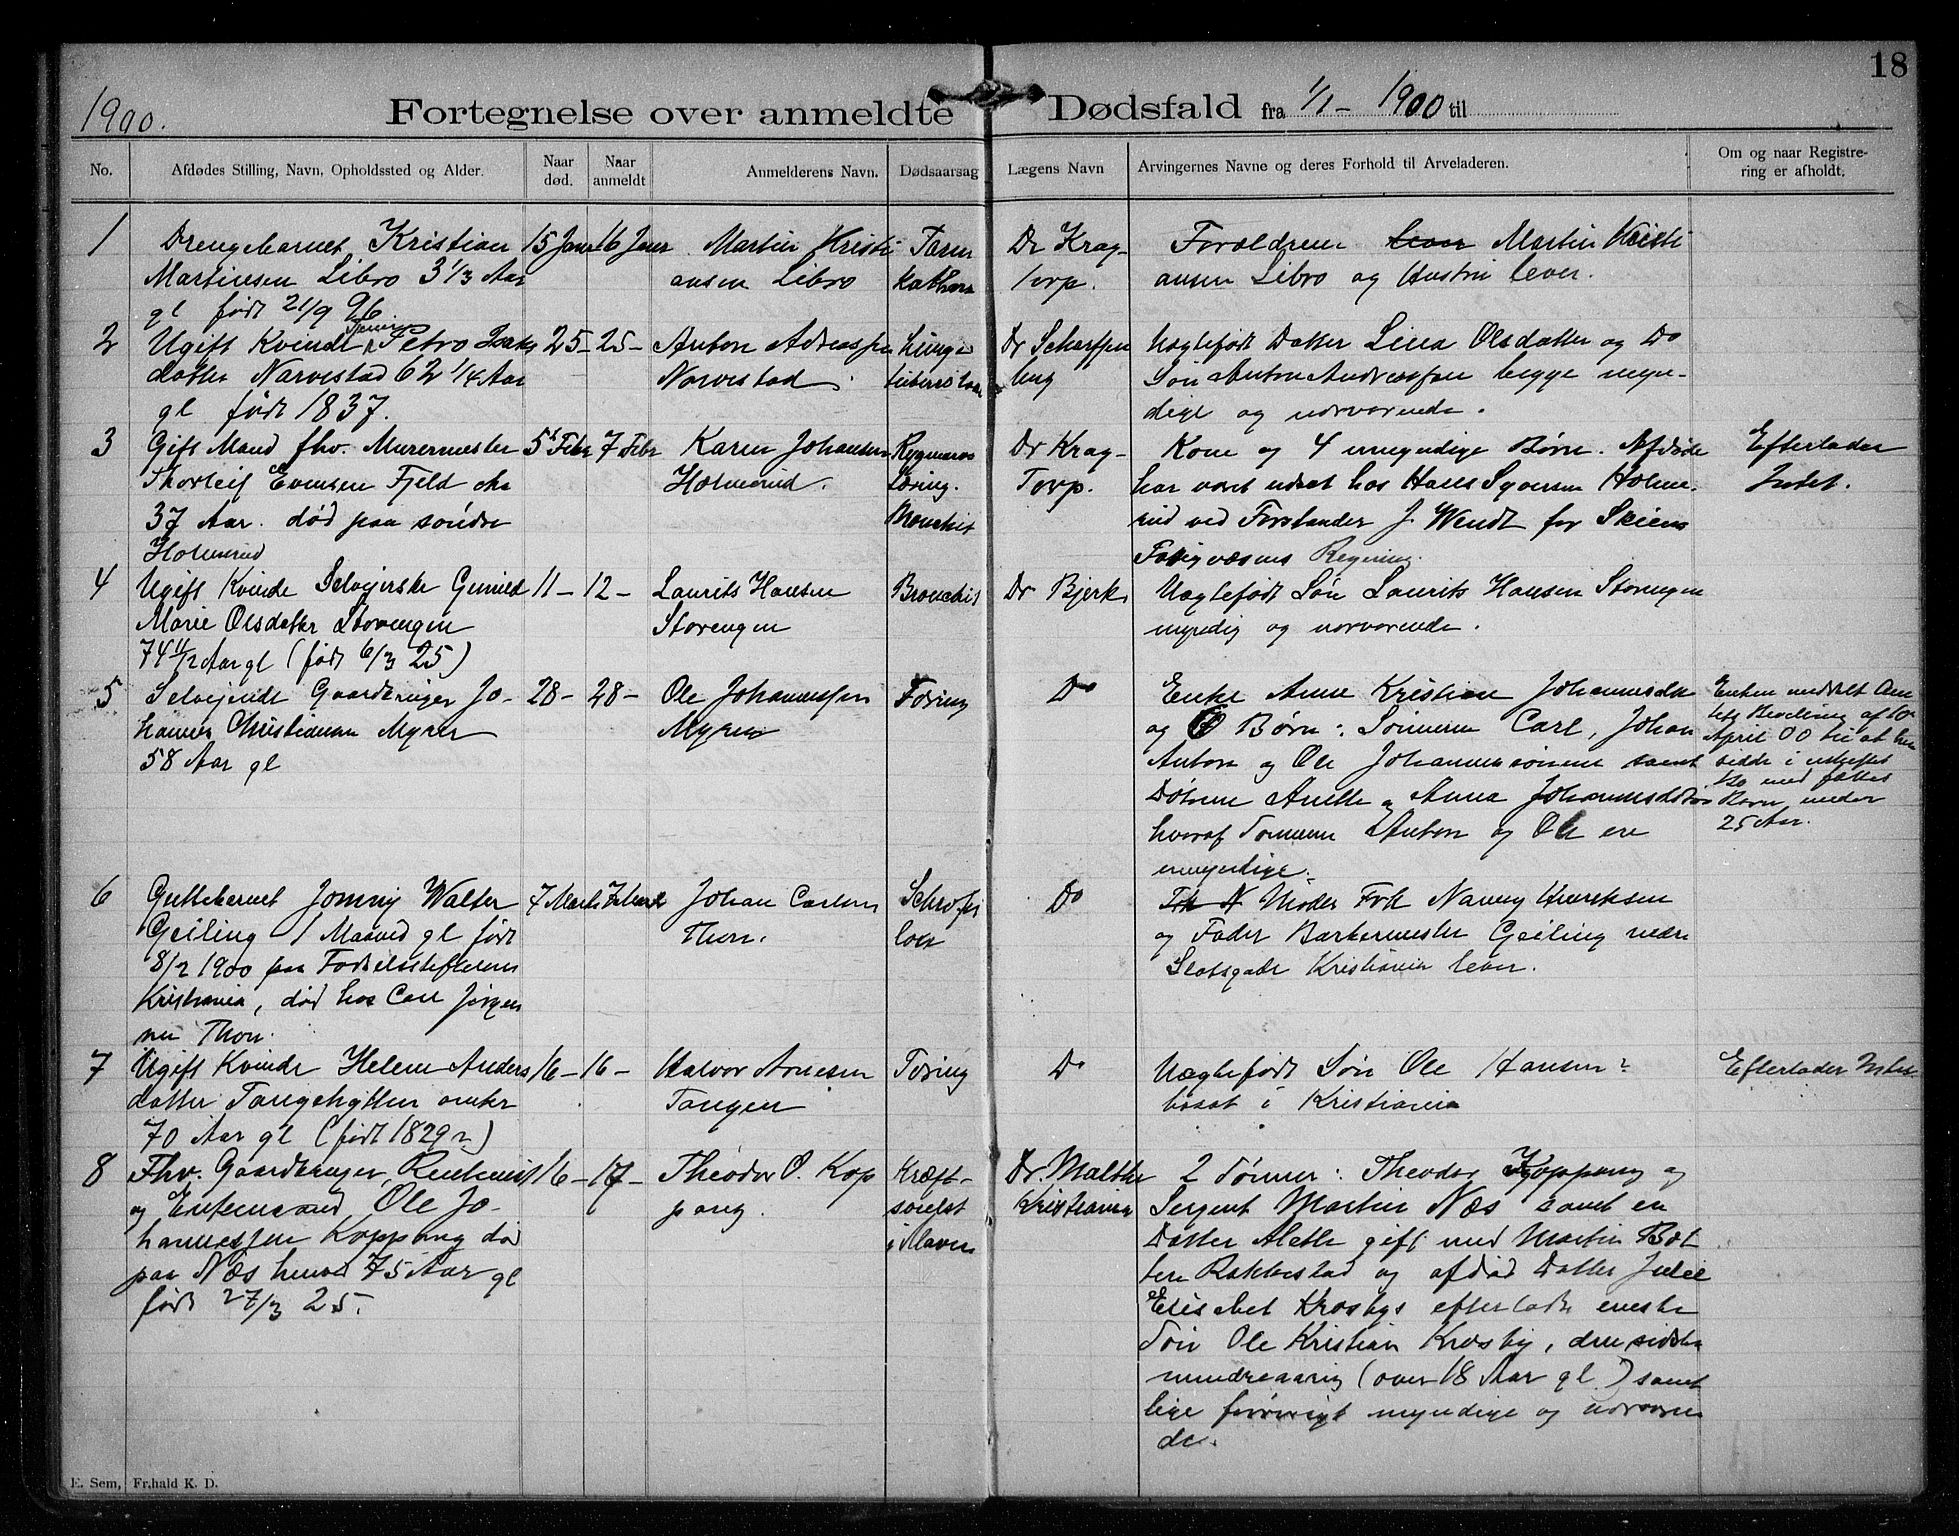 18
1900.
Fortegnelse over anmeldte Dødsfald fra 1/1 – 1900 til
No.
Afdødes Stilling, Navn, Opholdssted og Alder.
Naar død.
Naar anmeldt
Anmelderens Navn.
Dødsaarsag
Lægens Navn
Arvingernes Navne og deres Forhold til Arveladeren.
Om og naar Registrering er afholdt.
1
Drengebarnet Kristian
Martinsen Libro 3 1/3 Aar
gl født 21/9 96.
15 Janr
16 Janr
Martin Kristi
ansen Libro
Tarm
katharr
Dr Krag-
Torp.
Forældrene Martin Kristi
ansen Libro og Hustru lever.
2
Ugift Kvinde Petro Isaks
datter Narvestad 62 1/4 Aar
gl født 1837.
25 –
25 –
Anton Andreassen
Narvestad
Lunge
tuberculose
Dr Scharffen
berg
Uægtefødt Datter Lina Olsdatter og Do
Søn Anton Andreassen begge myn-
dige og nærværende.
3
Gift Mand fhv. Murermester
Thorleif Evensen Fjeld cha
37 Aar. død paa søndre
Holmerud
5t Febr
7 Febr
Karen Johansen
Holmerud.
Rygmarvs
tæring.
Bronchit
Dr Krag-
Torp.
Kone og 4 umyndige Børn. Afdøde
har været udsat hos Hans Syversen Holme-
rud ved Forstander J. Wendt for Skiens
Fattigvæsens Regning.
Efterlader
Intet.
4
Ugift Kvinde Selvejerske Gunild
Marie Olsdatter Storengen
74 11/12 Aar gl (født 6/3 25)
11 –
12 –
Laurits Hansen
Storengen
Bronchit
Dr Bjerke
Uægtefødt Søn Laurits Hansen Storengen
myndig og nærværende.
5
Selvejende Gaardbruger Jo-
hannes Christiansen Myren
58 Aar gl
28 –
28 –
Ole Johannessen
Myren
Tæring
Do
Enke Anne Kristian Johannesdtr
og 6 Børn: Sønnerne Carl, Johan
Anton og Ole Johannessønner samt
Døtrene Anette og Anna Johannesdøtre
hvoraf Sønnerne Anton og Ole ere
umyndige.
Enken meddelt Am
tets Bevilling af 10
April 00 til at hen
sidde i uskiftet
Bo med fælles
Børn under
25 Aar.
6
Guttebarnet Jonny Walter
Geiling 1 Maaned gl født
8/2 1900 paa Fødselsstiftelsen
Kristiania, død hos Carl Jørgen
sen Thon.
7 Marts
7 Marts
Johan Carlsen
Thon.
Schrofu
lose
Do
Moder Frk Nanny Henriksen
og Fader Barbermester Geiling nære
Slotsgade Kristiania lever.
7
Ugift Kvinde Helene Anders
datter Tangehytten omkr
70 Aar gl (født 1829?)
16 –
16 –
Halvor Arnesen
Tangen
Tæring
Do
Uægtefødt Søn Ole Hansen?
bosat i Kristiania
Efterlader Intet.
8
Fhv. Gaardbruger, Rentenist
og Enkemand Ole Jo-
hannessen Koppang død
paa Næs henved 75 Aar gl
født 27/3 25.
16 –
17 –
Theodor O. Kop
pang.
Kræft-
svulst
i Maven
Dr. Malthe
Kristiania
2 Sønner: Theodor Koppang og
Sergent Martin Næs samt en
Datter Alethe gift med Martin
Rakkestad og afdød Datter Julie
Elisabet Krosbys efterladte eneste
Søn Ole Kristian Krosby, den sidste
mindreaarig (over 18 Aar gl.) samt
lige forøvrigt myndige og nærværen
de.
E. Sem, Fr.hald K. D.